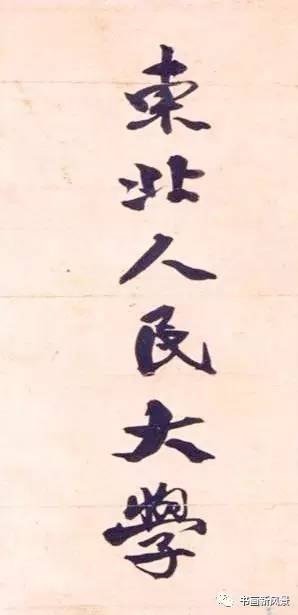 東北人民大學
书画新风景